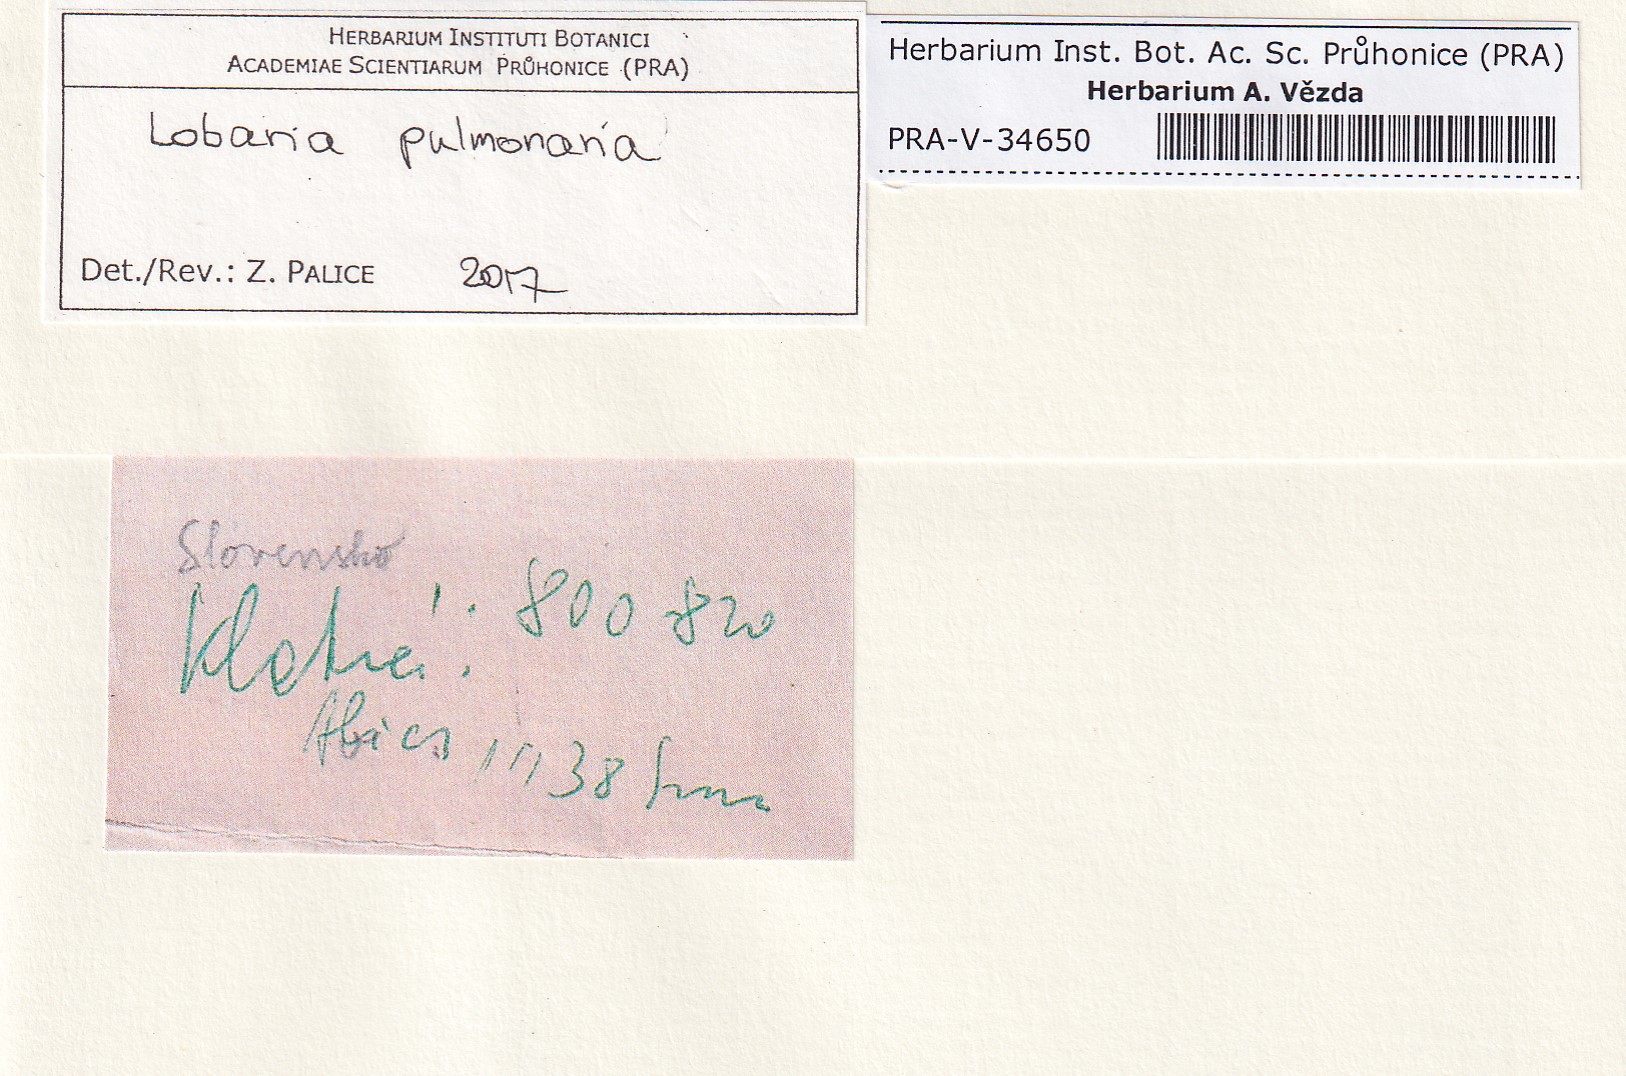 HERBARIUM INSTITUTI BOTANICI
ACADEMIAE SCIENTIARUM PRŮHONICE (PRA)
Lobaria pulmonaria
Det./Rev.: Z. PALICE 2017
Herbarium Inst. Bot. Ac. Sc. Průhonice (PRA)
Herbarium A. Vězda
PRA-V-34650
Slovensko
800 820
Abies 38